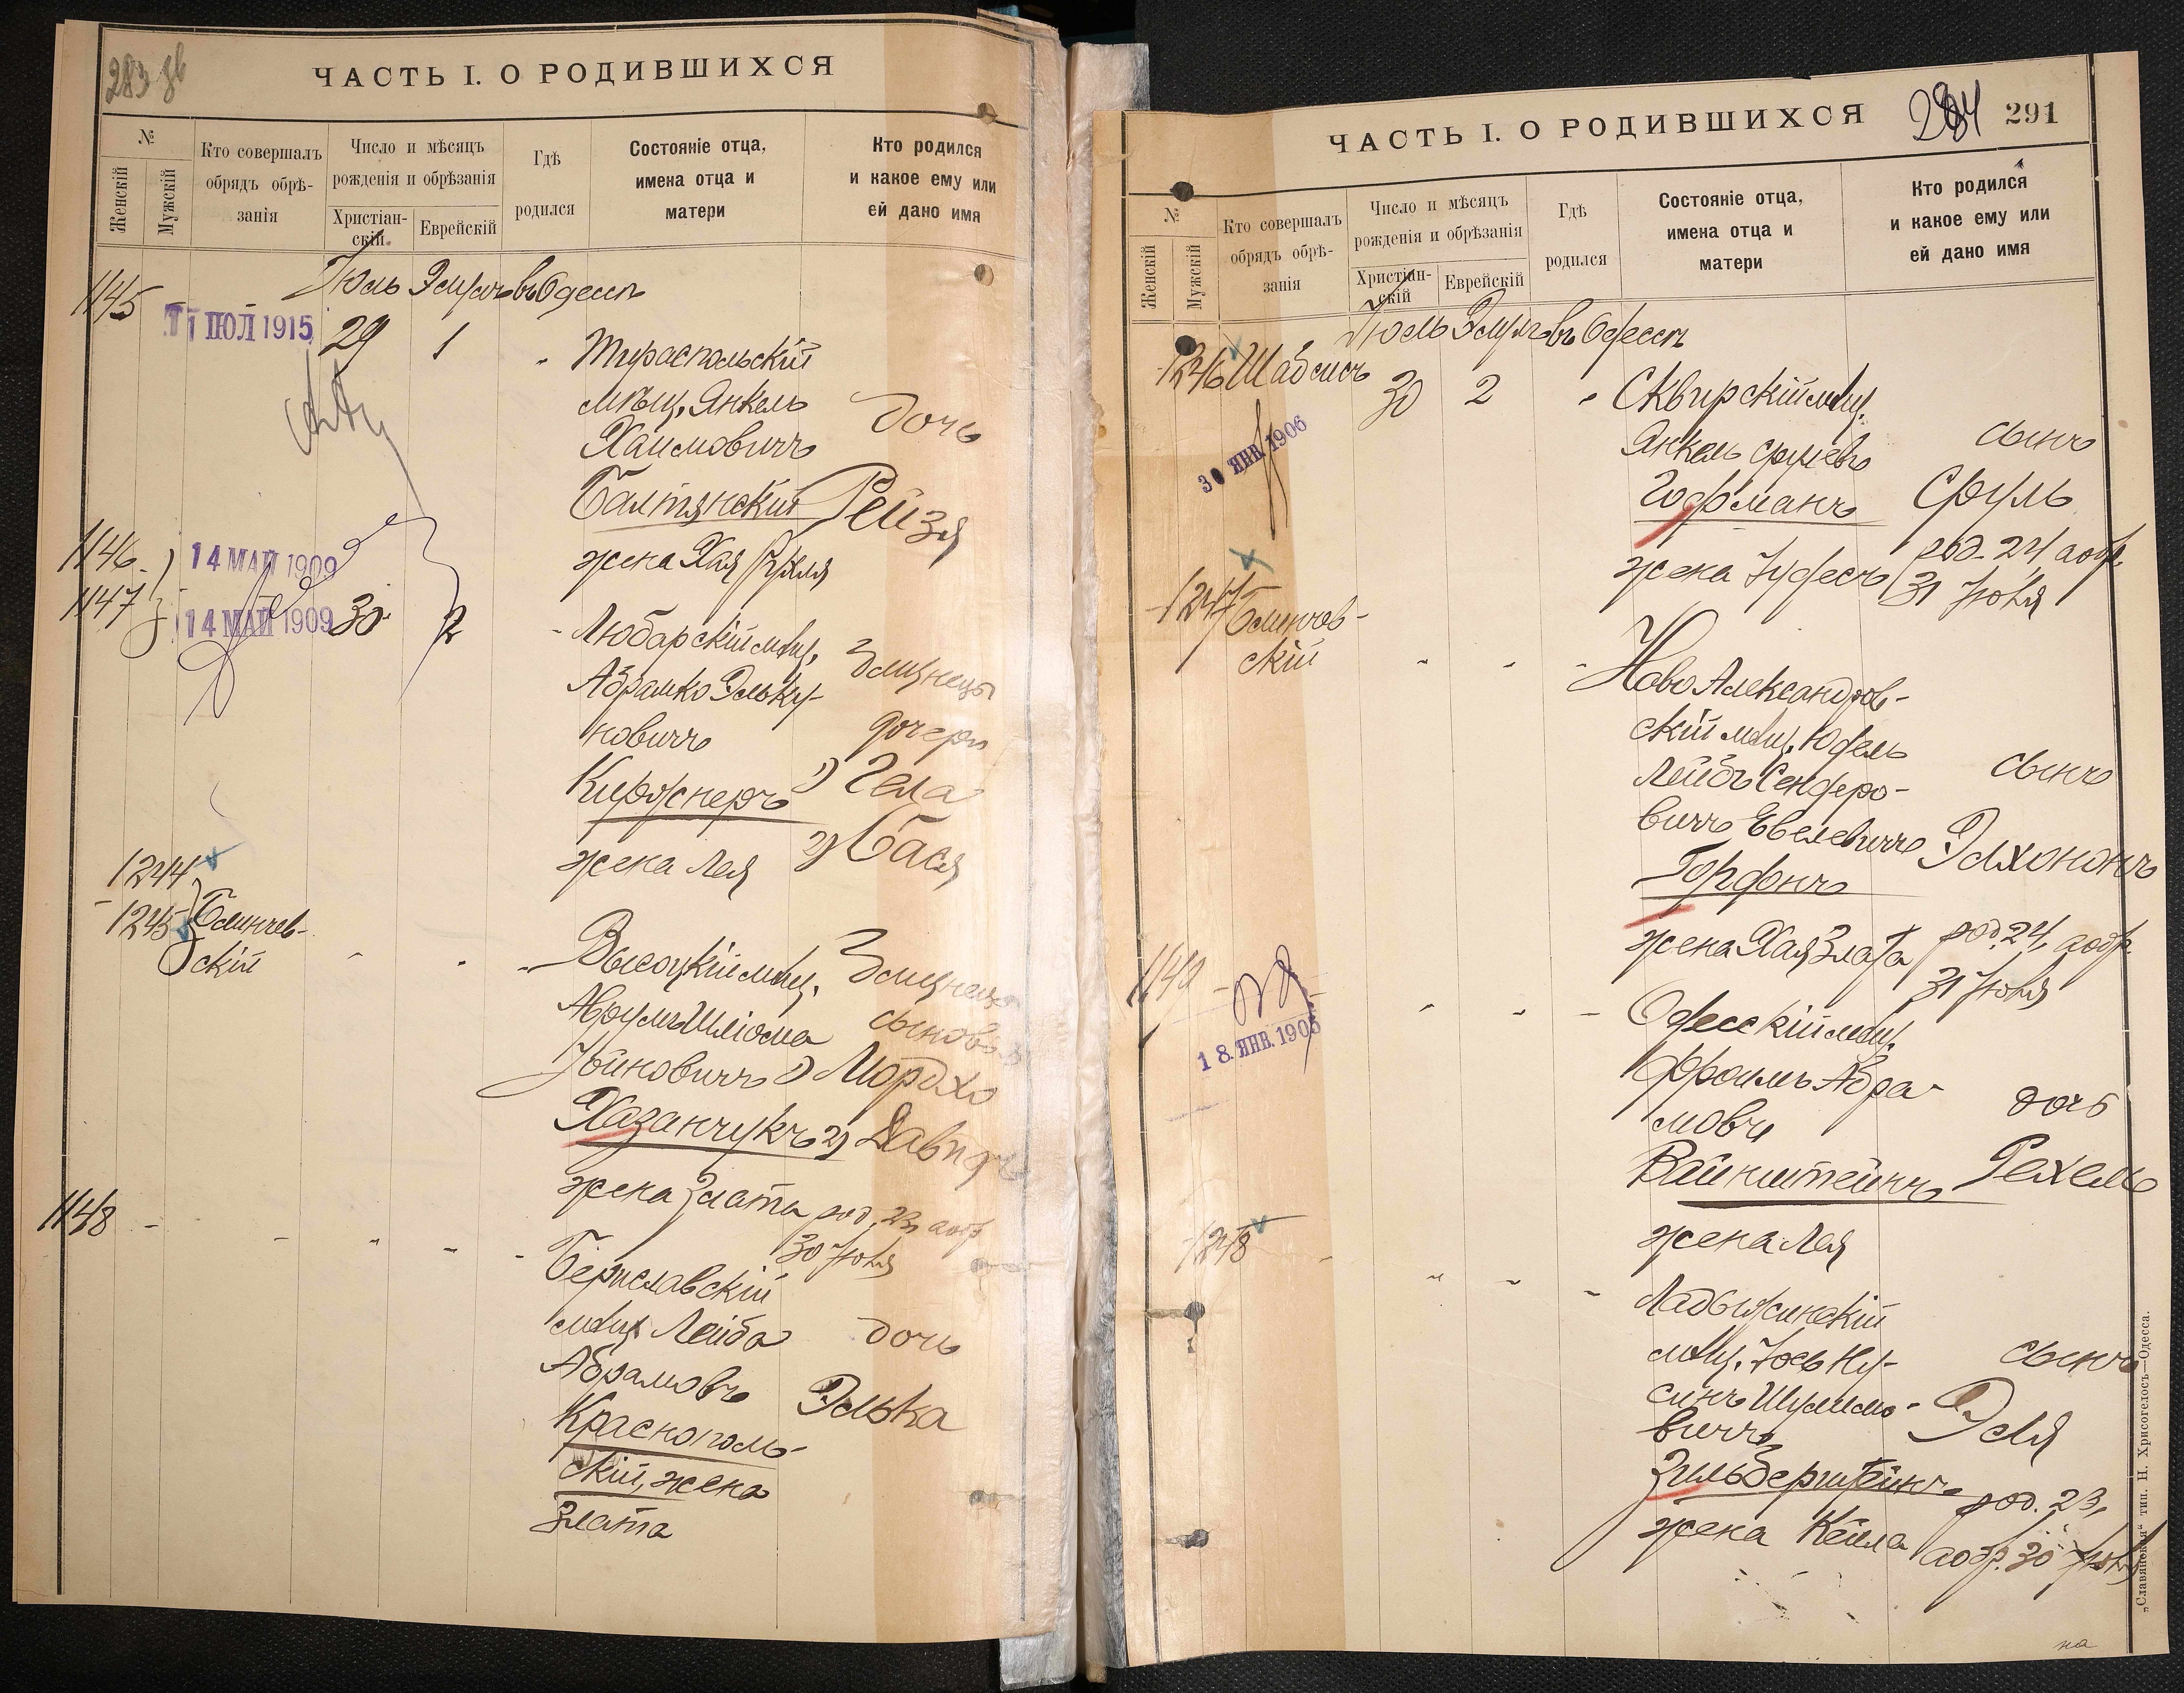 283 об
ЧАСТЬ I. О РОДИВШИХСЯ
№
Женскій
Мужскій
Кто совершалъ
обрядъ обрѣ-
занія
Число и мѣсяцъ
рожденія и обрѣзанія
Христіан-
скій.
Еврейскій
Гдѣ
родился
Состояніе отца,
имена отца и
матери
Кто родился
и какое ему или
ей дано имя
Іюль Элулъ въ Одессѣ
1145
11 ІЮЛ 1915
29 1
Тираспольскій
мѣщ. Янкель
Хаимовичъ
Балтянскій
жена Хая Рухля
дочь
Рейзя
1146
1147
14 МАЙ 1909
14 МАЙ 1909
30 2
Любарскій мѣщ.
Абрамко Эльку-
новичъ
Киржнеръ
жена Лея
Близнецы
дочери
1) Гела
2) Бася
1244
1245
Блинчев-
скій
Высоцкій мѣщ.
Аврумъ Шліома
Уйновичъ
Хазанчукъ
жена Злата
Близнецы
сыновья
1) Мордхо
2) Давидъ
род. 23, а обр.
30 Іюля
1148
Бериславскій
мѣщ. Лейба
Абрамовъ
Краснополь-
скій, жена
Злата
дочь
Элька
ЧАСТЬ I. О РОДИВШИХСЯ
284 291
№
Женскій
Мужскій
Кто совершалъ
обрядъ обрѣ-
занія
Число и мѣсяцъ
рожденія и обрѣзанія
Христіан-
скій
Еврейскій
Гдѣ
родился
Состояніе отца,
имена отца и
матери
Кто родился
и какое ему или
ей дано имя
Іюль Элулъ въ Одессѣ
1246 Шабсисъ
30 ЯНВ. 1906
30 2
Сквирскій мѣщ.
Янкель Срулевъ
Гофманъ
жена Іудесъ
сынъ
Сруль
род. 24, а обр.
31 Іюля
1247 Блинчев-
скій
Ново Александров-
скій мѣщ. Юдель
Лейбъ Сендеро-
вичъ Евелевичъ
Гордонъ
жена Хая Злата
сынъ
Элхононъ
род. 24, а обр.
31 Іюля
1149
18. ЯНВ. 1906
Одесскій мѣщ.
Фроимъ Абра-
мовъ
Вайнштейнъ
жена Лея
дочь
Рехель
1248
Ладыжинскій
мѣщ. Іось Ну-
синъ Шулимо-
вичъ
Зильберштейнъ
жена Кейла
сынъ
Эля
род. 23,
а обр. 30 Іюля
на
„Славянская“ тип. Н. Хрисогелосъ—Одесса.